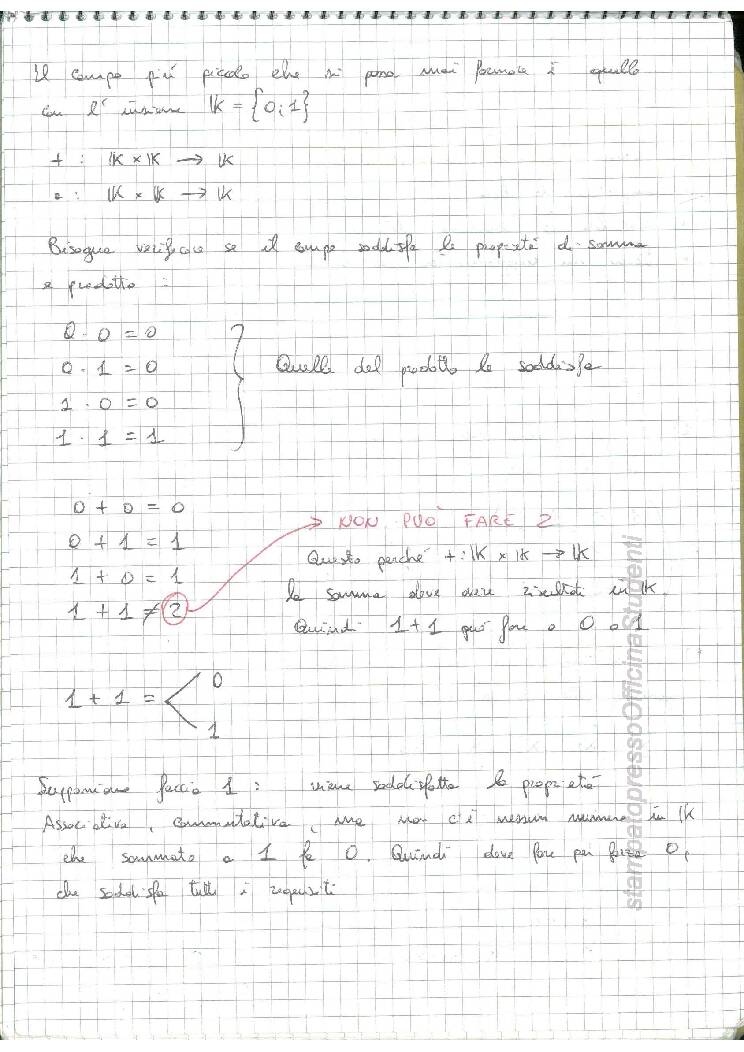 Il campo più piccolo che si possa mai formare è quello
con l'insieme K = {0;1}
+ : K × K → K
• : K × K → K
Bisogna verificare se il campo soddisfa le proprietà di somma
e prodotto :
0 · 0 = 0
0 · 1 = 0
1 · 0 = 0
1 · 1 = 1
Quelle del prodotto le soddisfa
0 + 0 = 0
0 + 1 = 1
1 + 0 = 1
1 + 1 ≠ 2
NON PUÒ FARE 2
Questo perché + : K × K → K
la somma deve avere risultati in K.
Quindi 1+1 può fare o 0 o 1
1 + 1 = 0
1
Supponiamo faccia 1 : viene soddisfatta la proprietà
Associativa, commutativa, ma non c'è nessun numero in K
che sommato a 1 fa 0. Quindi deve fare per forza 0,
che soddisfa tutti i requisiti
stampatopressoOfficinaStudenti